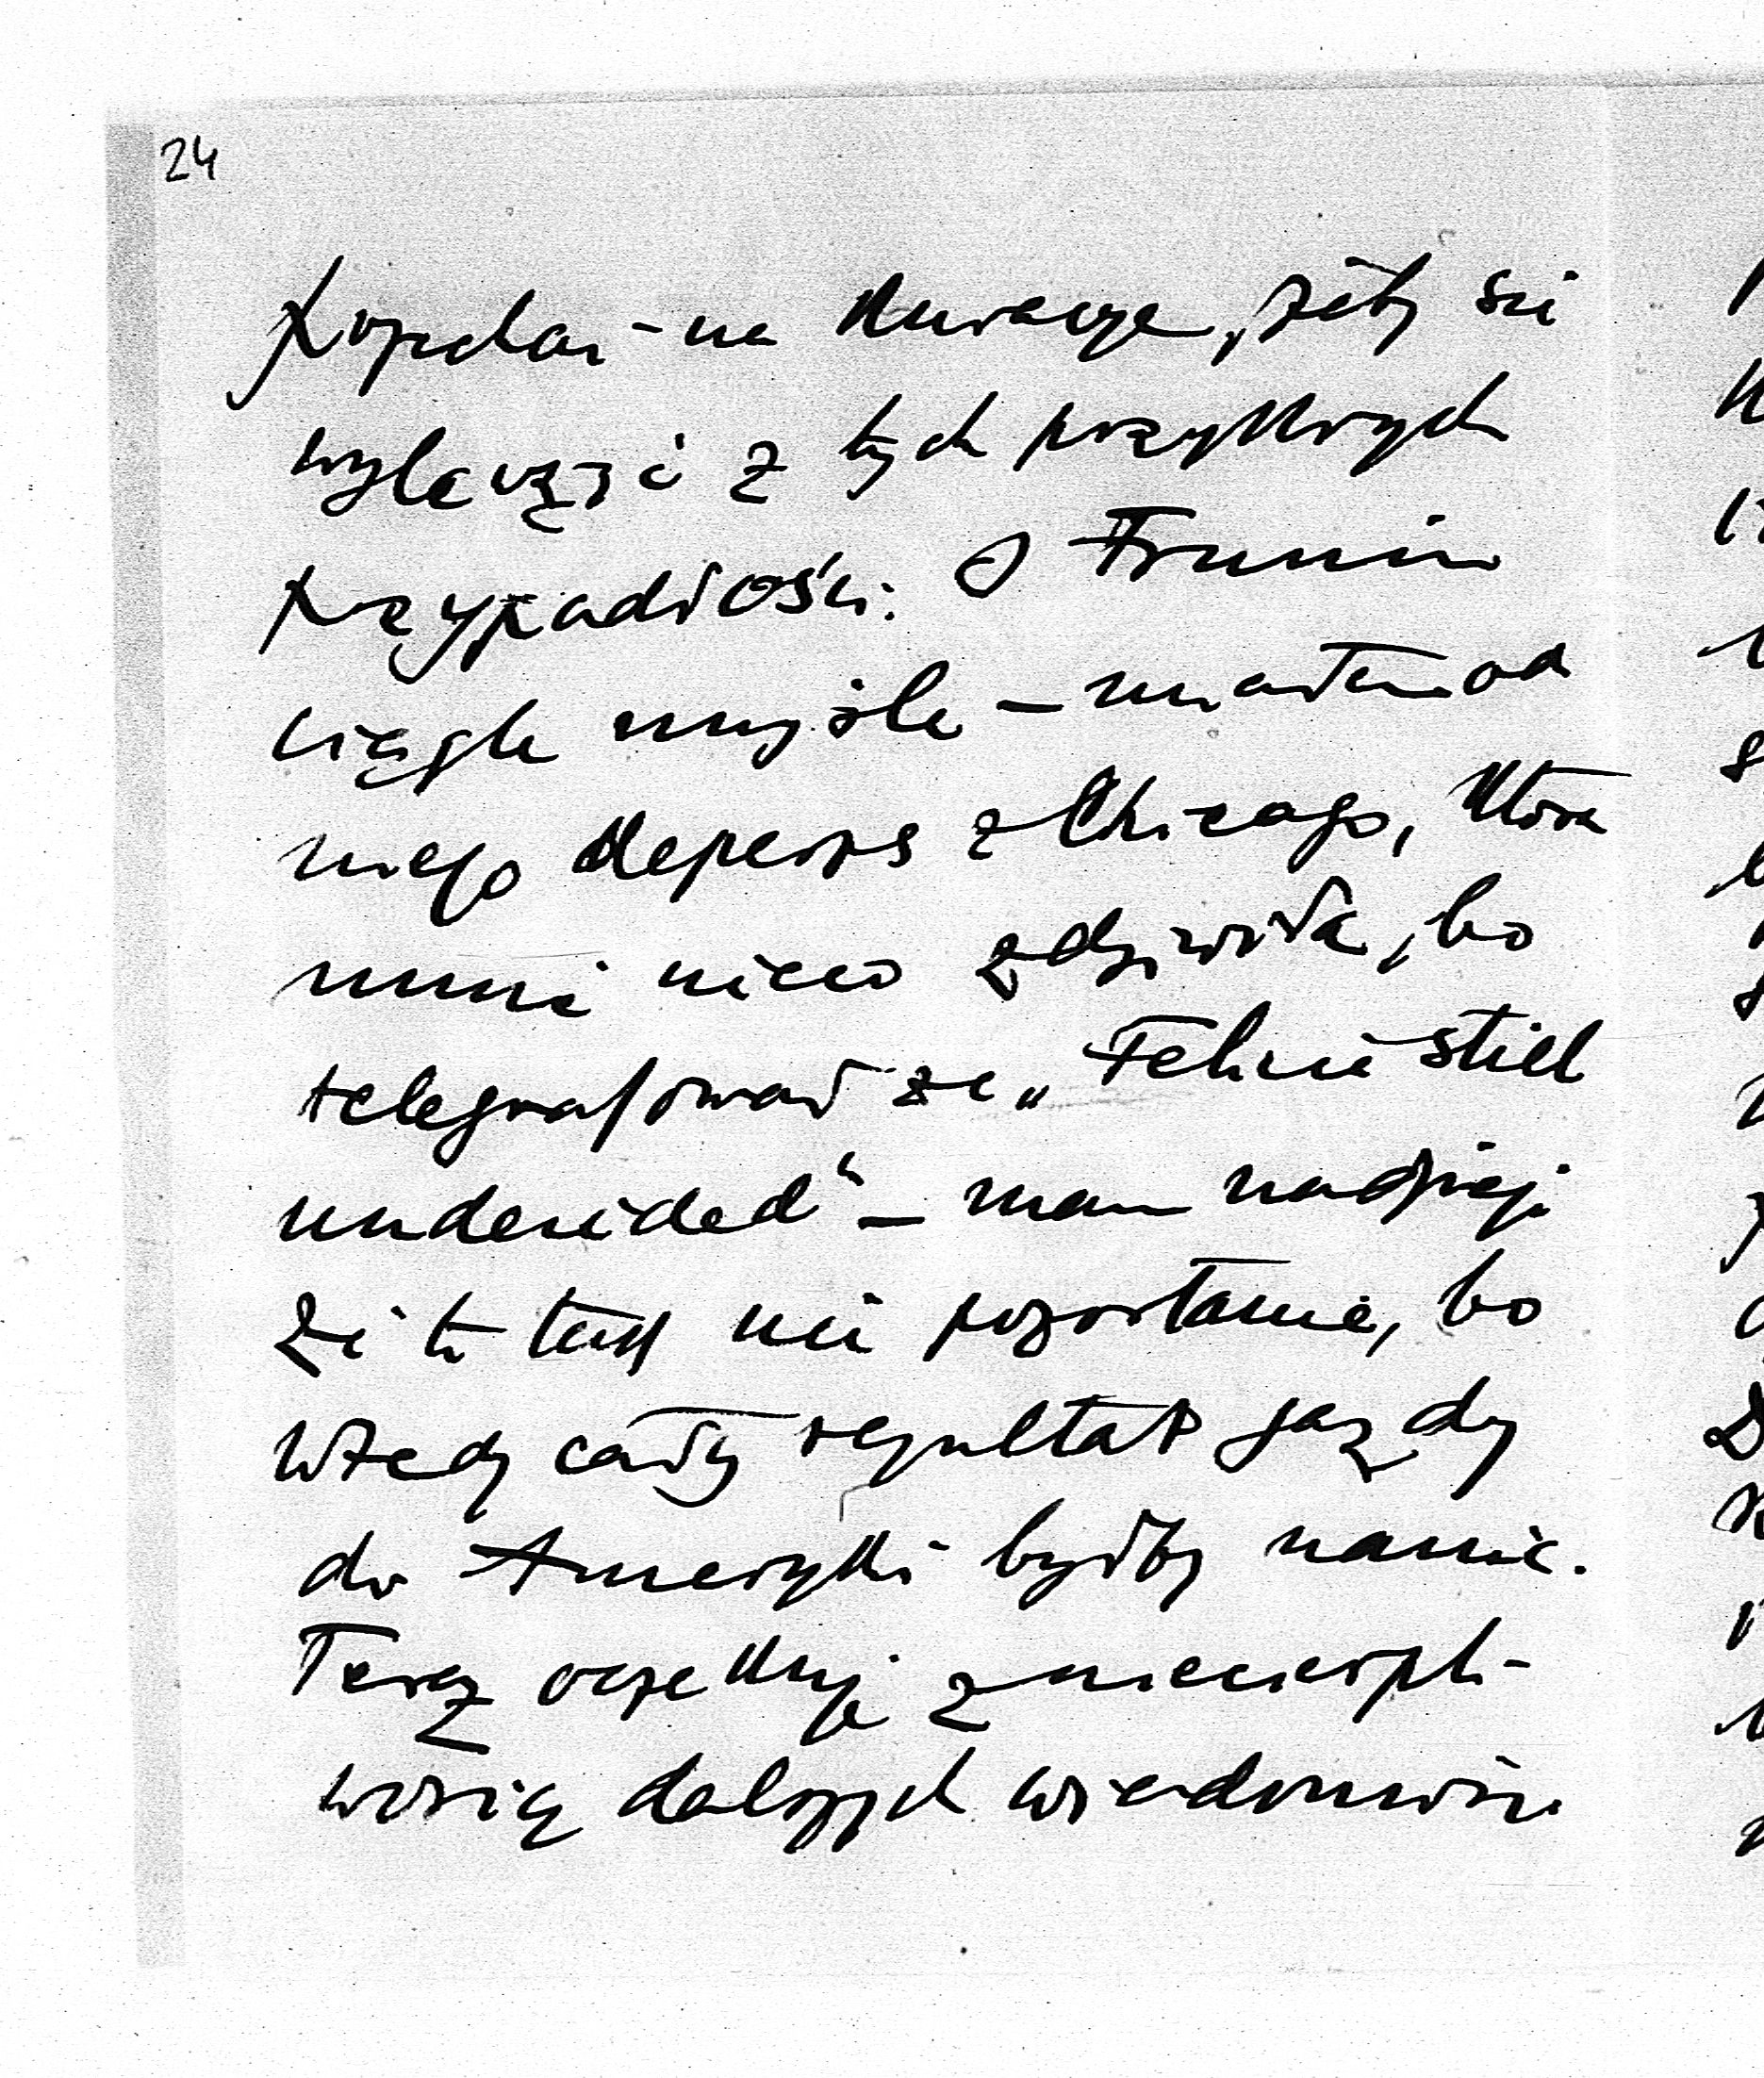 24
na kurację, żeby się
wyleczyć z tych przykrych
przypadłości. O Fruniu
ciągle myślę – miałam od
niego depeszę z Chicago, która
mnie nieco zdziwiła, bo
telegrafował że „Felunia still
undecided“ – mam nadzieję
że to tak nie pozostanie, bo
wtedy cały rezultat jazdy
do Ameryki byłby na nic.
Teraz oczekuję z niecierpli-
wością dalszych wiadomości.